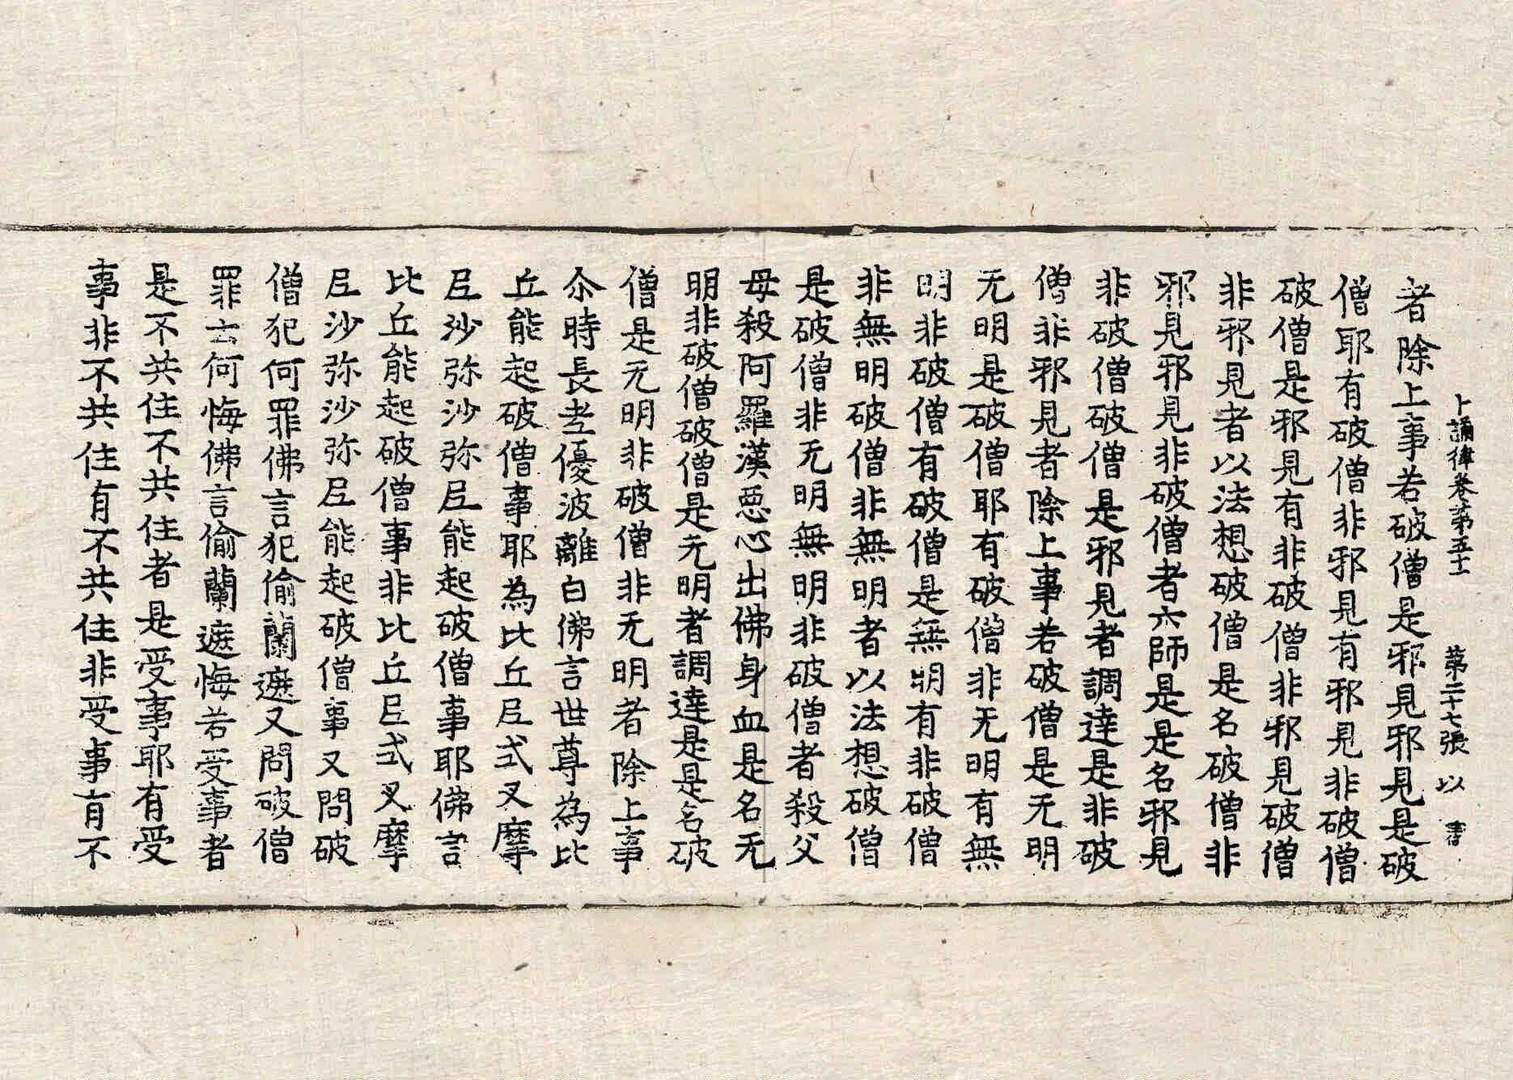 誦律卷第五十 第二十七張 以
者除上事若破僧是邪見邪見是破
僧耶有破僧非邪見有邪見非破僧
破僧是邪見有非破僧非邪見破僧
非邪見者以法想破僧是名破僧非
邪見邪見非破僧者六師是是名邪見
非破僧破僧是邪見者調達是非破
僧非邪見者除上事若破僧是无明
无明是破僧耶有破僧非无明有無
明非破僧有破僧是無明有非破僧
非無明破僧非無明者以法想破僧
是破僧非无明無明非破僧者殺父
母殺阿羅漢惡心出佛身血是名无
明非破僧破僧是无明者調達是是名破
僧是无明非破僧非无明者除上事
尒時長老優波離白佛言世尊為比
丘能起破僧事耶為比丘尼式叉摩
尼沙弥沙弥尼能起破僧事耶佛言
比丘能起破僧事非比丘尼式叉摩
尼沙弥沙弥尼能起破僧事又問破
僧犯何罪佛言犯偷蘭遮又問破僧
罪云何悔佛言偷蘭遮悔若受事者
是不共住不共住者是受事耶有受
事非不共住有不共住非受事有不